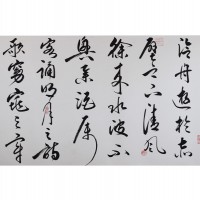 泛舟遊於赤
壁之下清風
徐來水波不
興舉酒屬
客誦明月之詩
歌窈窕之章